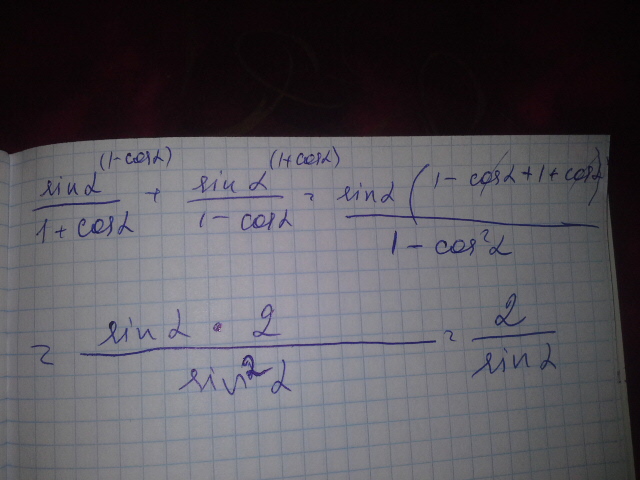 sinα (1-cosα) / 1+cosα + sinα (1+cosα) / 1-cosα = sinα (1-cosα+1+cosα) / 1-cos²α
= sinα · 2 / sin²α = 2 / sinα